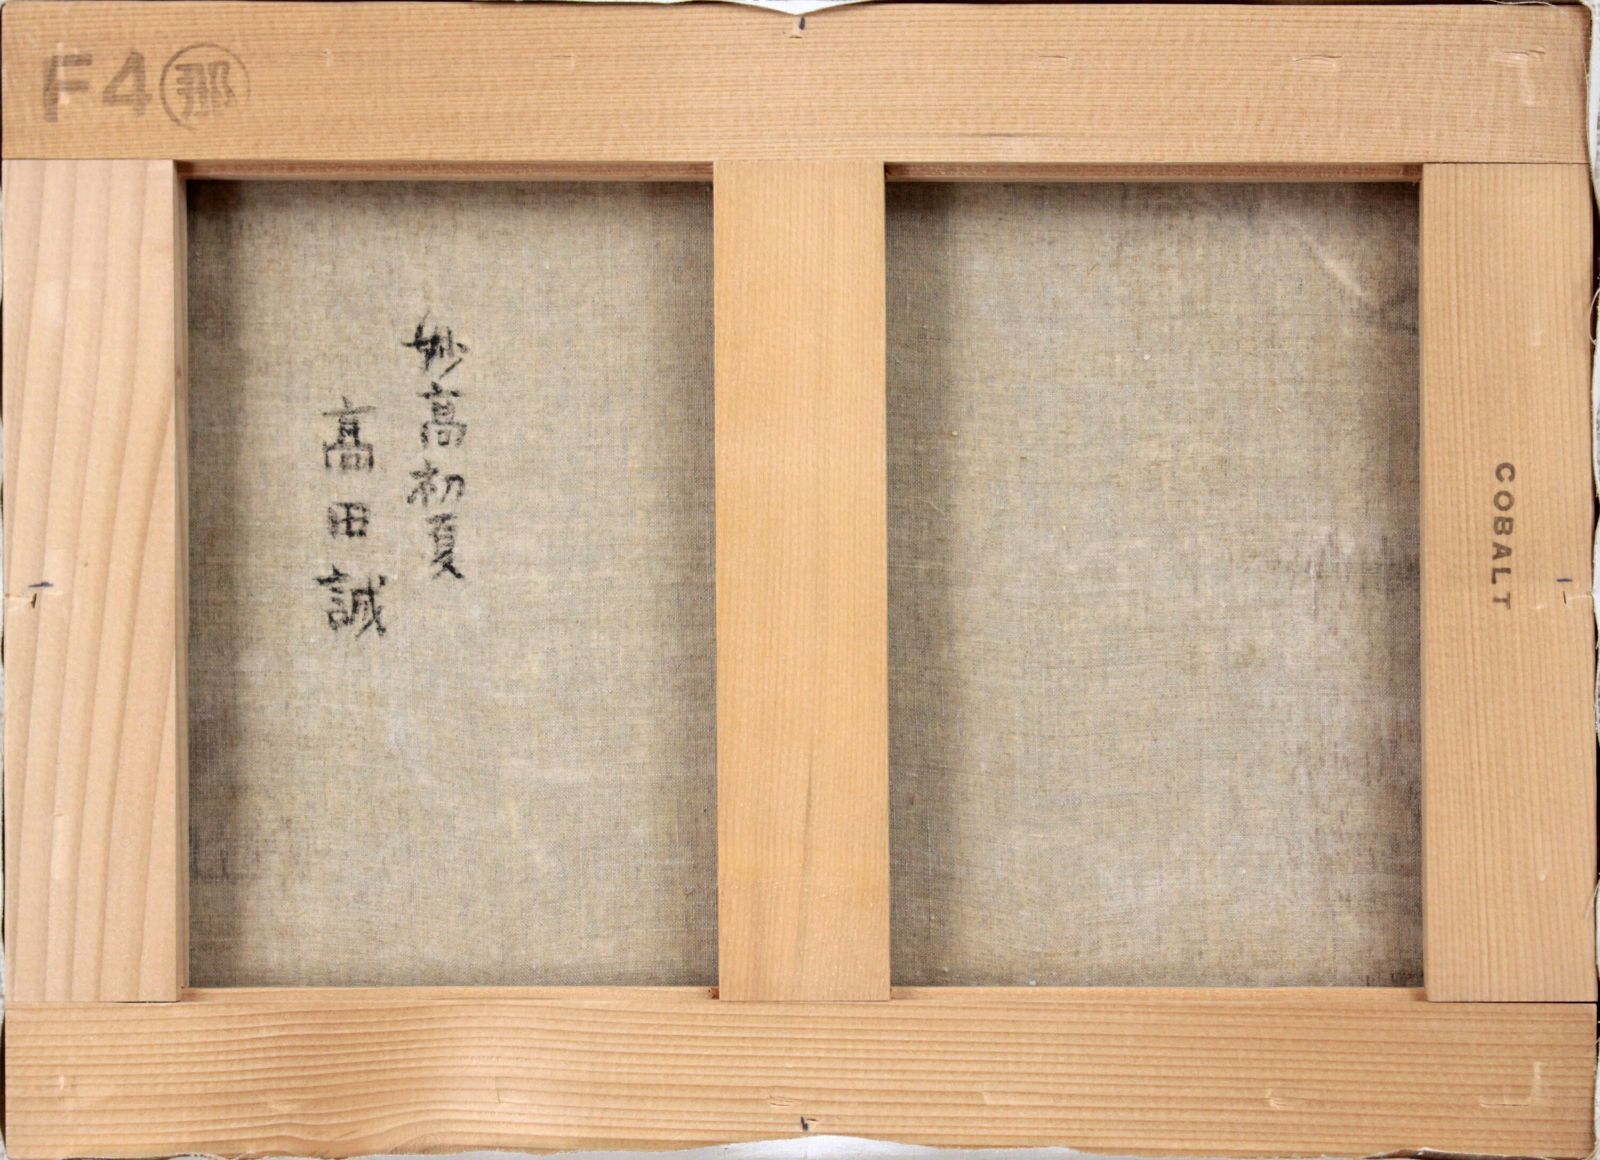 F4 那
妙高初夏
高田誠
COBALT